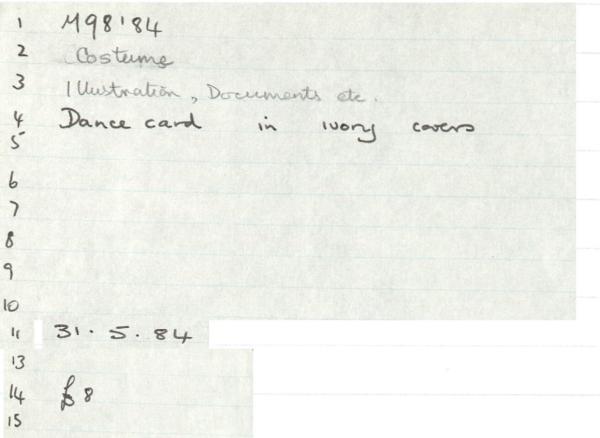 1 M98'84
2 Costume
3 Illustration, Documents etc.
4 Dance card in ivory covers
5
6
7
8
9
10
11 31.5.84
13
14 £8
15